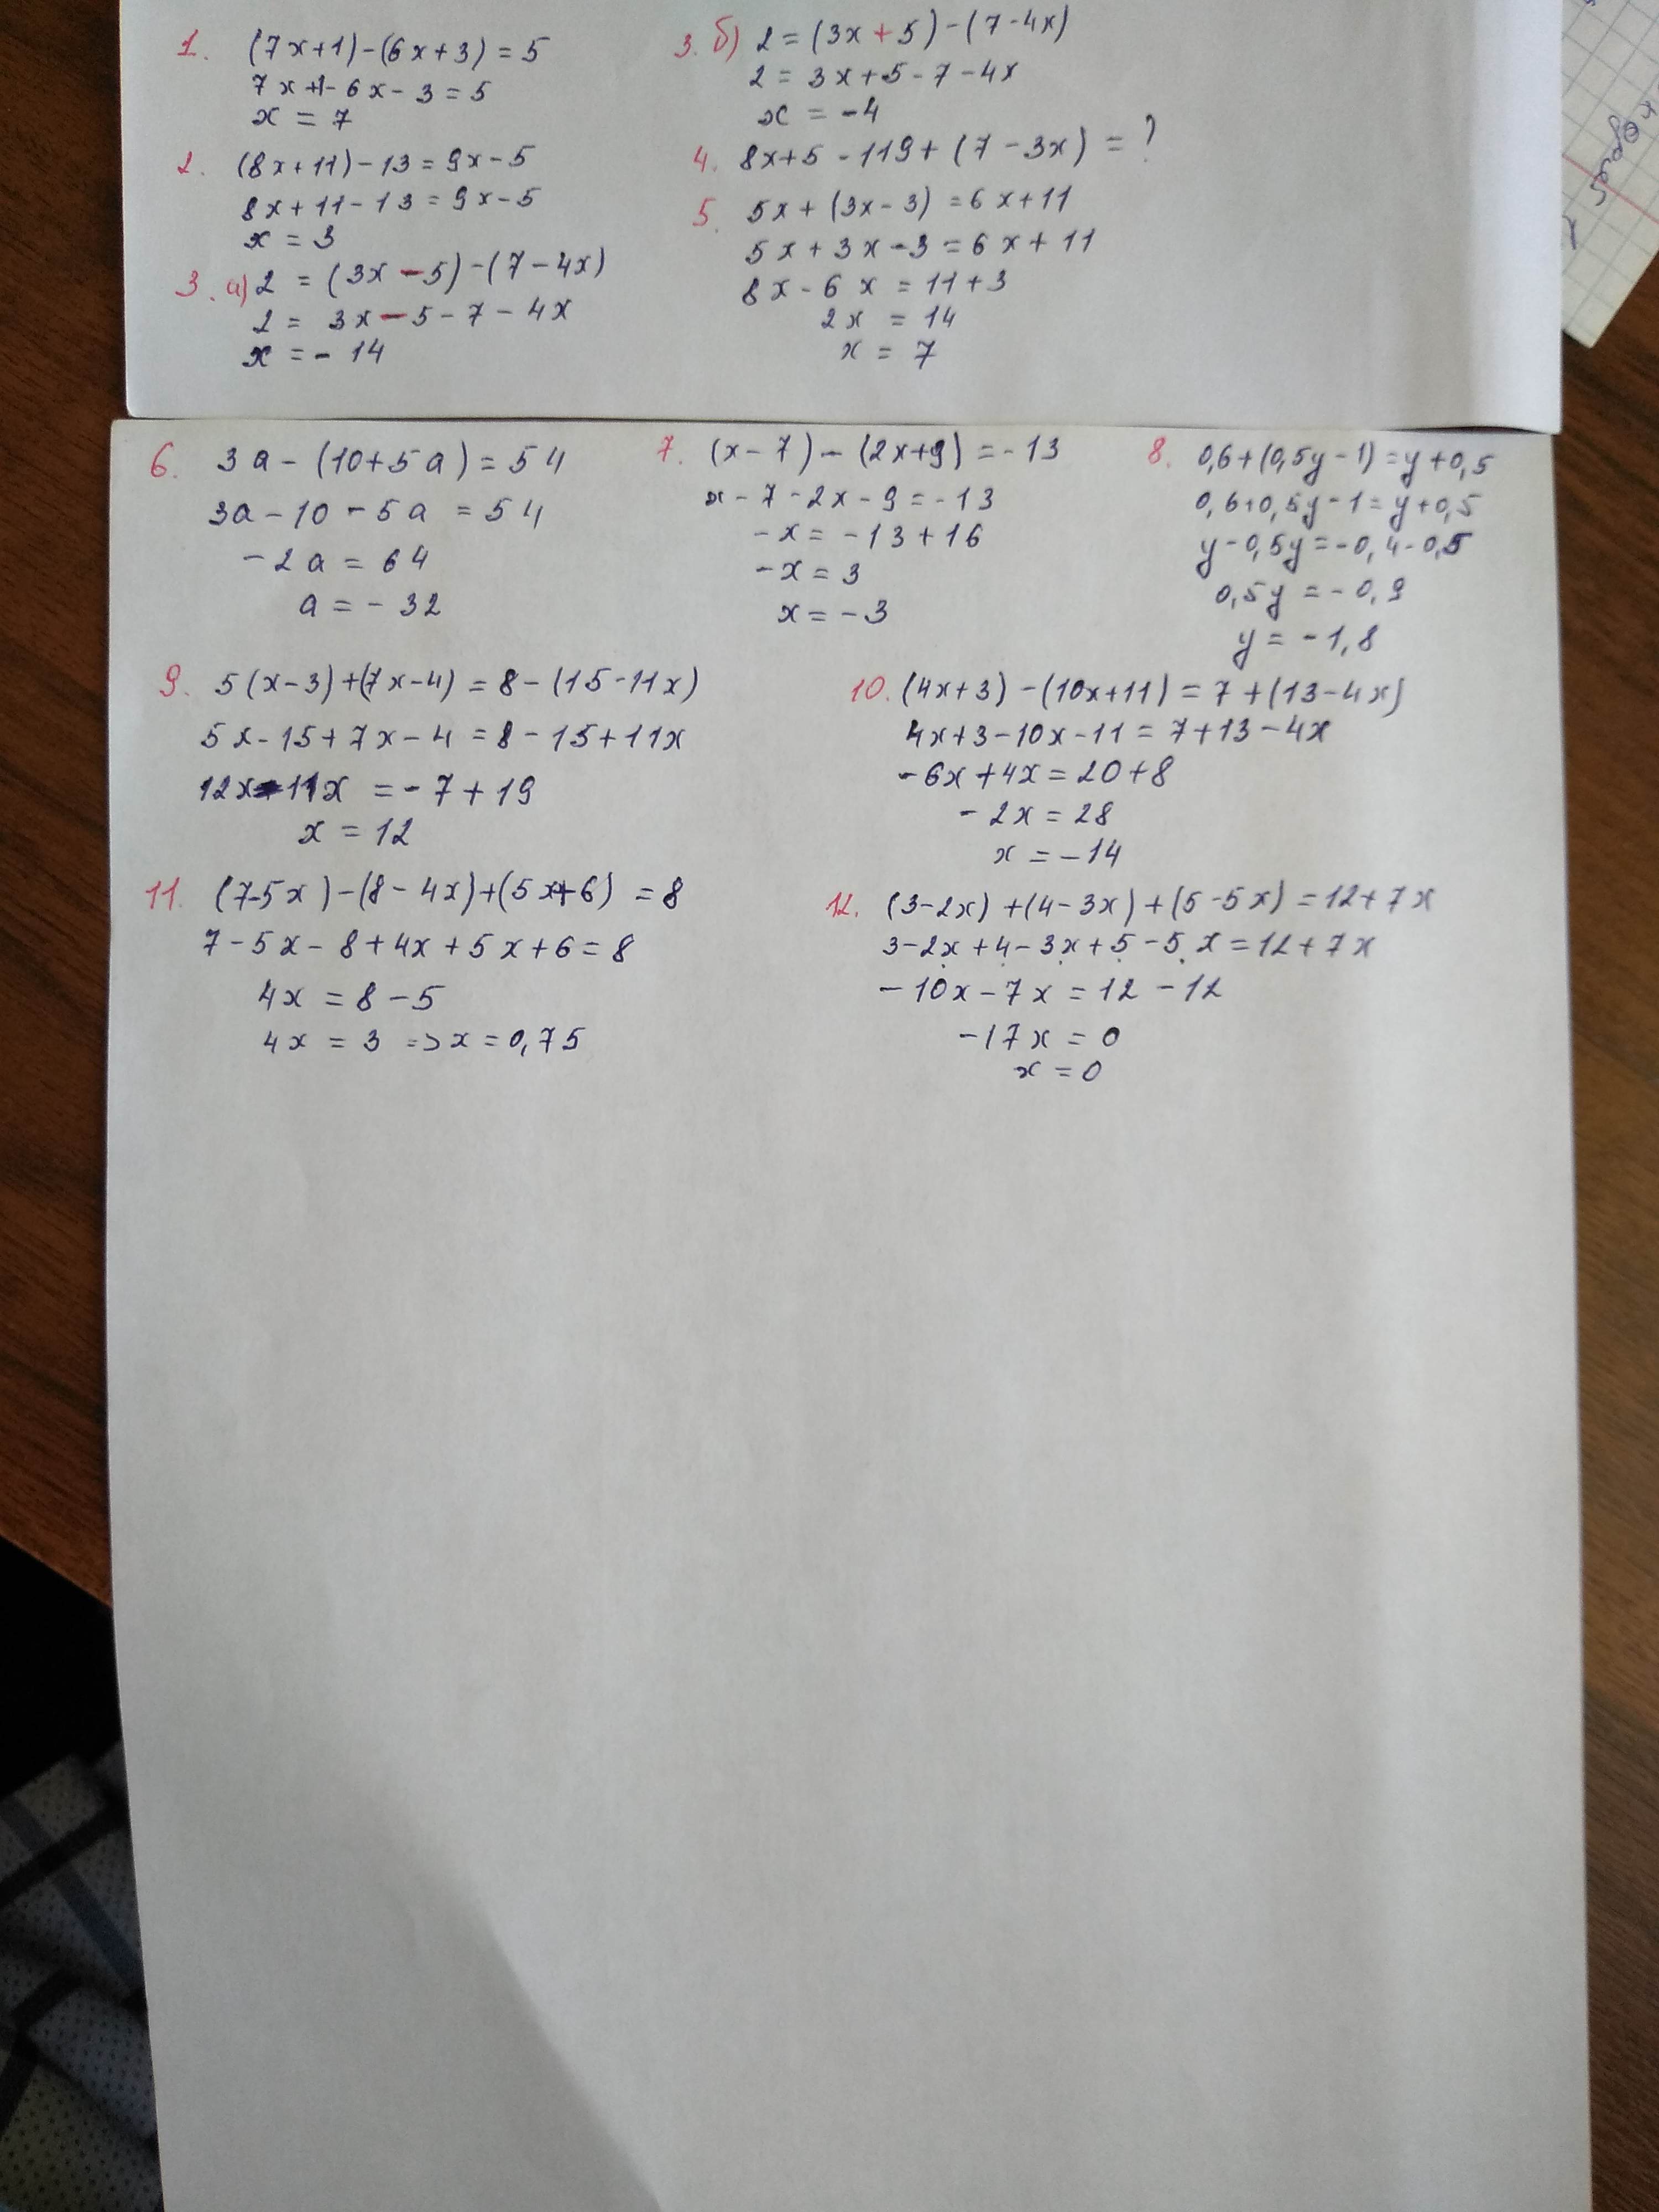 1. (7x+1)-(6x+3) = 5
7x+1-6x-3=5
x = 7
2. (8x+11)-13=9x-5
8x+11-13=9x-5
x = 3
3. а) 2 = (3x-5)-(7-4x)
2 = 3x-5-7-4x
x = -14
3. б) 2 = (3x+5)-(7-4x)
2 = 3x+5-7-4x
x = -4
4. 8x+5-119+(7-3x) = ?
5. 5x+(3x-3) = 6x+11
5x+3x-3=6x+11
8x-6x = 11+3
2x = 14
x = 7
6. 3a-(10+5a) = 54
3a-10-5a = 54
-2a = 64
a = -32
7. (x-7)-(2x+9) = -13
x-7-2x-9=-13
-x = -13+16
-x = 3
x = -3
8. 0,6+(0,5y-1)=y+0,5
0,6+0,5y-1=y+0,5
y-0,5y=-0,4-0,5
0,5y = -0,9
y = -1,8
9. 5(x-3)+(7x-4) = 8-(15-11x)
5x-15+7x-4 = 8-15+11x
12x-11x = -7+19
x = 12
10. (4x+3)-(10x+11) = 7+(13-4x)
4x+3-10x-11=7+13-4x
-6x+4x=20+8
-2x = 28
x = -14
11. (7-5x)-(8-4x)+(5x+6) = 8
7-5x-8+4x+5x+6=8
4x = 8-5
4x = 3 => x = 0,75
12. (3-2x)+(4-3x)+(5-5x) = 12+7x
3-2x+4-3x+5-5x=12+7x
-10x-7x = 12-12
-17x = 0
x = 0